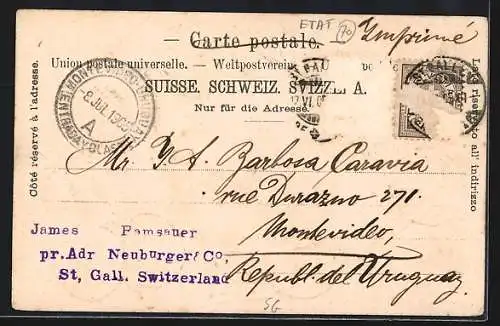 ETAT 70
— Carte postale. —
Imprimé
Union postale universelle. — Weltpostverein
SUISSE. SCHWEIZ. SVIZZERA.
Nur für die Adresse.
Côté réservé à l'adresse.
Lato riservato all' indirizzo
MONTEVIDEO
8 JUL 190
A
Mr. J. A. Barbosa Caravia
rue Durazno 271.
Montevideo,
Republ. del Uruguay.
James Ramsauer
pr.Adr Neuburger & Co,
St, Gall. Switzerland
SG